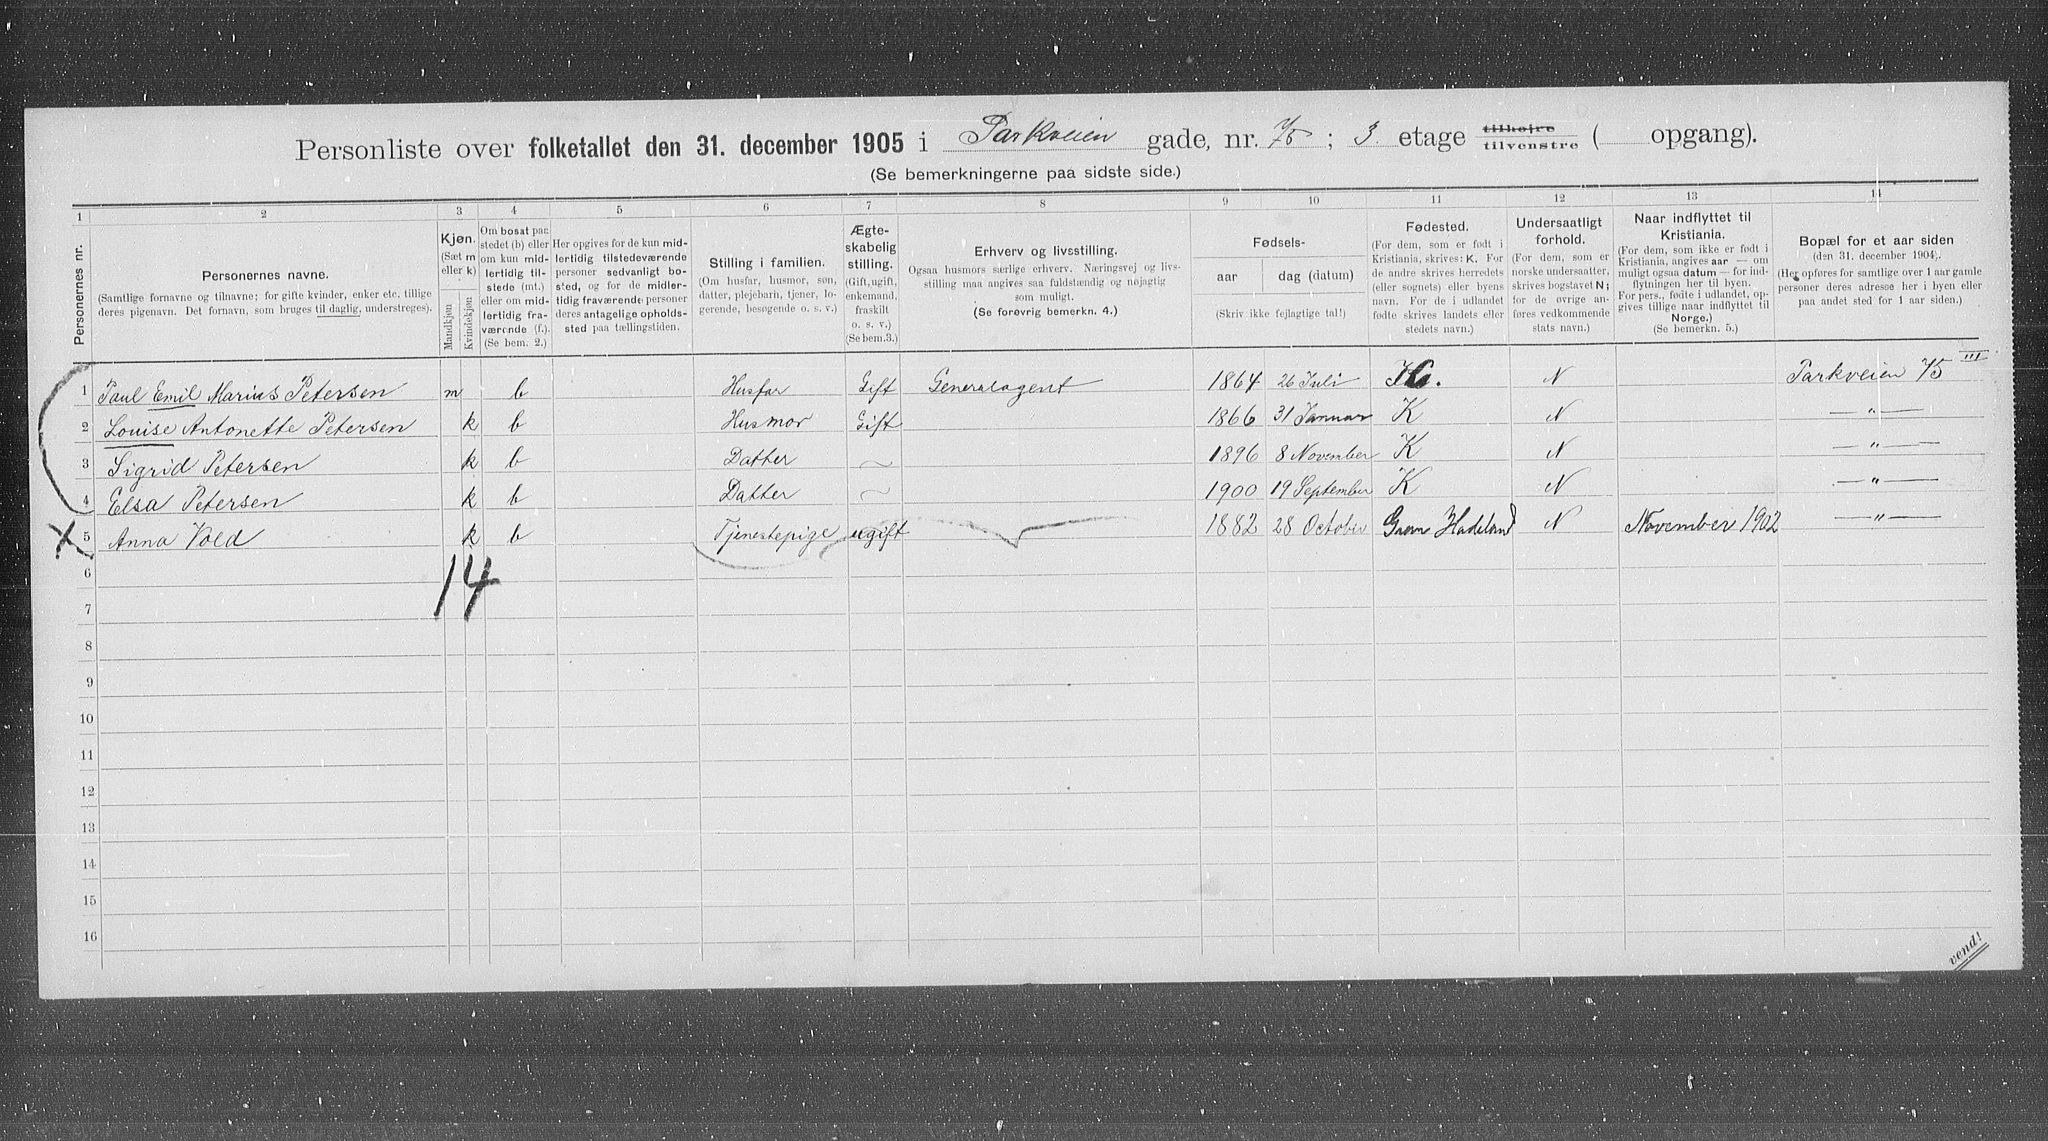 Personliste over folketallet den 31. december 1905 i Parkveien gade, nr. 75; 3. etage tilhøjre tilvenstre ( opgang).
(Se bemerkningerne paa sidste side.)
1 2 3 4 5 6 7 8 9 10 11 12 13 14
Personernes nr.
Personernes navne.
(Samtlige fornavne og tilnavne; for gifte kvinder, enker etc. tillige
deres pigenavn. Det fornavn, som bruges til daglig, understreges).
Kjøn.
(Sæt m
eller k)
Mandkjøn
Kvindekjøn
Om bosat paa
stedet (b) eller
om kun mid-
lertidig til-
stede (mt.)
eller om mid-
lertidig fra-
værende (f.).
(Se bem. 2.)
Her opgives for de kun mid-
lertidig tilstedeværende
personer sedvanligt bo-
sted, og for de midler-
tidig fraværende personer
deres antagelige opholds-
sted paa tællingstiden.
Stilling i familien.
(Om husfar, husmor, søn,
datter, plejebarn, tjener, lo-
gerende, besøgende o. s. v.)
Ægte-
skabelig
stilling.
(Gift, ugift,
enkemand,
fraskilt
o. s. v.)
(Se bem.3.)
Erhverv og livsstilling.
Ogsaa husmors særlige erhverv. Næringsvej og livs-
stilling maa angives saa fuldstændig og nøjagtig
som muligt.
(Se forøvrig bemerkn. 4.)
Fødsels-
aar dag (datum)
(Skriv ikke fejlagtige tal!)
Fødested.
(For dem, som er født i
Kristiania, skrives: K. For
de andre skrives herredets
(eller sognets) eller byens
navn. For de i udlandet
fødte skrives landets eller
stedets navn.)
Undersaatligt
forhold.
(For dem, som er
norske undersaatter,
skrives bogstavet N;
for de øvrige an-
føres vedkommende
stats navn.)
Naar indflyttet til
Kristiania.
(For dem, som ikke er født i
Kristiania, angives aar — om
muligt ogsaa datum — for ind-
flytningen her til byen.
For pers., fødte i udlandet, op-
gives tillige naar indflyttet til
Norge.)
(Se bemerkn. 5.)
Bopæl for et aar siden
(den 31. december 1904).
(Her opføres for samtlige over 1 aar gamle
personer deres adresse her i byen eller
paa andet sted for 1 aar siden.)
1 Paul Emil Marius Petersen m b Husfar Gift Generalagent 1864 26 Juli K. N Parkveien 75 III
2 Louise Antonette Petersen k b Husmor Gift 1866 31 Januar K N — " —
3 Sigrid Petersen k b Datter ~ 1896 8 November K N — " —
4 Elsa Petersen k b Datter ~ 1900 19 September K N — " —
5 Anna Vold k b Tjenestepige ugift 1882 28 October Gran Hadeland N November 1902 — " —
6 14
7
8
9
10
11
12
13
14
15
16
vend!